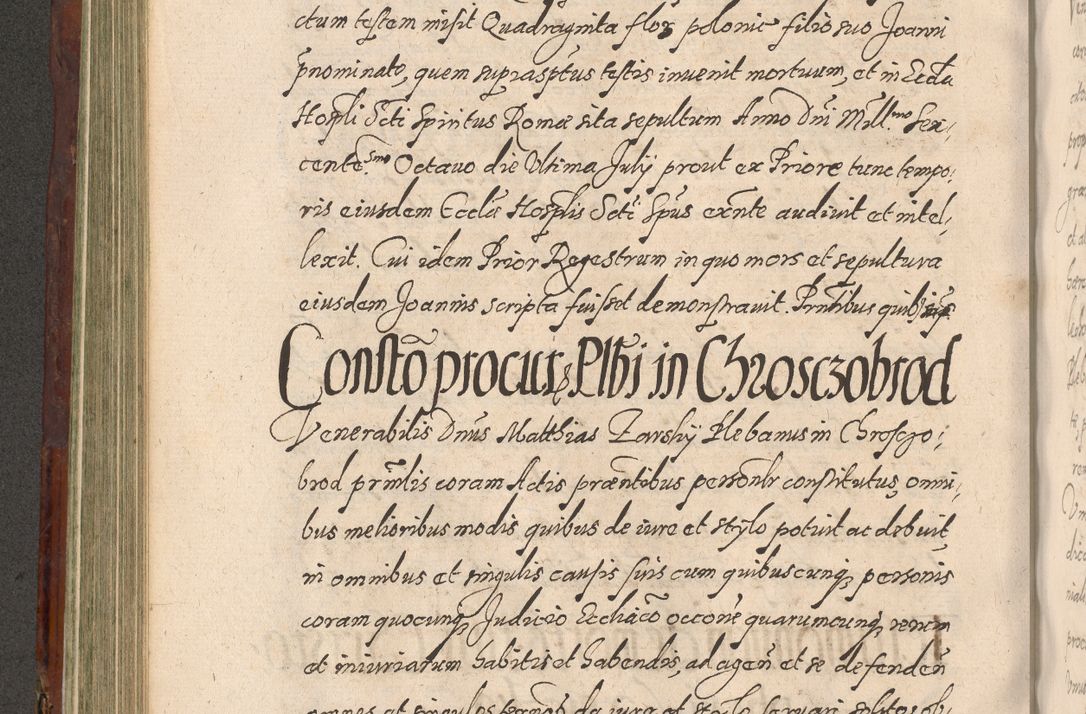 ctum testem misit Quadraginta flor polonic filio suo Joanni
pnominato, quem suprasptus testis invenit mortuum, et in Eccla
Hospli Scti Spiritus Romæ sita sepultum Anno Dni Mill.mo Sex,
cente.smo Octavo die Ultima July prout ex Priore tunc tempo,
ris eiusdem Ecclæ Hosplis Scti Spus exnte audivit et intel,
lexit. Cui idem Prior Regestrum in quo mors et sepultura
eiusdem Joannis scripta fuisset demonstravit. Prntibus quib
Constõ procur Plbi in Chrosczobrod
Venerabilis Dnus Matthias Zarsky Plebanus in Chrosczo,
brod prinlis coram Actis præntibus personlr constitutus omni,
bus melioribus modis quibus de iure et stylo potuit ac debuit,
in omnibus et singulis causis suis cum quibuscunq personis
coram quocunq Judicio Eccliãco occone quarumcunq rerum
et iniuriarum habitis et habendis, ad agen et se defenden
omnes et singulos terminos de iure et stylo servari solitos ob,